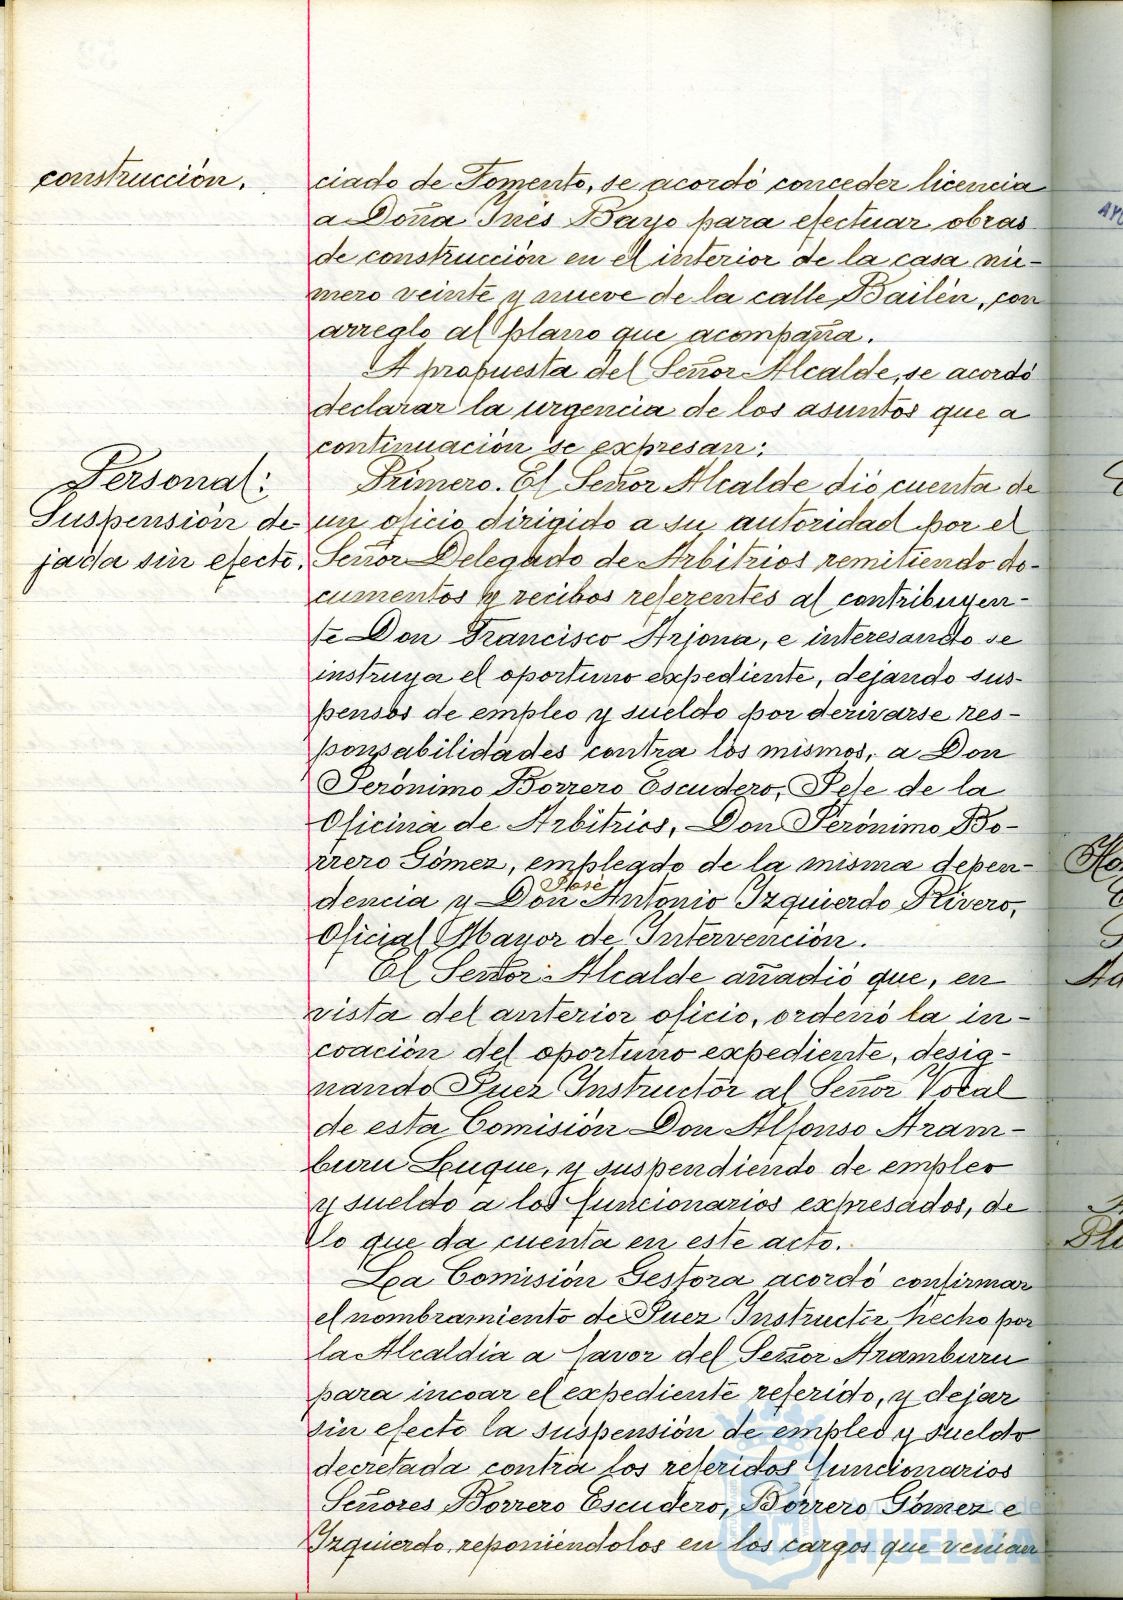 construcción.
ciado de Fomento, se acordó conceder licencia
a Doña Inés Bayo para efectuar obras
de construcción en el interior de la casa nú-
mero veinte y nueve de la calle Bailén, con
arreglo al plano que acompaña.
A propuesta del Señor Alcalde, se acordó
declarar la urgencia de los asuntos que a
continuación se expresan:
Personal:
Suspensión de-
jada sin efecto.
Primero. El Señor Alcalde dió cuenta de
un oficio dirigido a su autoridad por el
Señor Delegado de Arbitrios remitiendo do-
cumentos y recibos referentes al contribuyen-
te Don Francisco Arjona, e interesando se
instruya el oportuno expediente, dejando sus-
pensos de empleo y sueldo por derivarse res-
ponsabilidades contra los mismos, a Don
Jerónimo Borrero Escudero, Jefe de la
Oficina de Arbitrios, Don Jerónimo Bo-
rrero Gómez, empleado de la misma depen-
José
dencia y Don Antonio Izquierdo Rivero,
Oficial Mayor de Intervención.
El Señor Alcalde añadió que, en
vista del anterior oficio, ordenó la in-
coación del oportuno expediente, desig-
nando Juez Instructor al Señor Vocal
de esta Comisión Don Alfonso Aram-
buru Luque, y suspendiendo de empleo
y sueldo a los funcionarios expresados, de
lo que da cuenta en este acto.
La Comisión Gestora acordó confirmar
el nombramiento de Juez Instructor hecho por
la Alcaldía a favor del Señor Aramburu
para incoar el expediente referido, y dejar
sin efecto la suspensión de empleo y sueldo
decretada contra los referidos funcionarios
Señores Borrero Escudero, Borrero Gómez e
Izquierdo, reponiéndolos en los cargos que venían
HUELVA